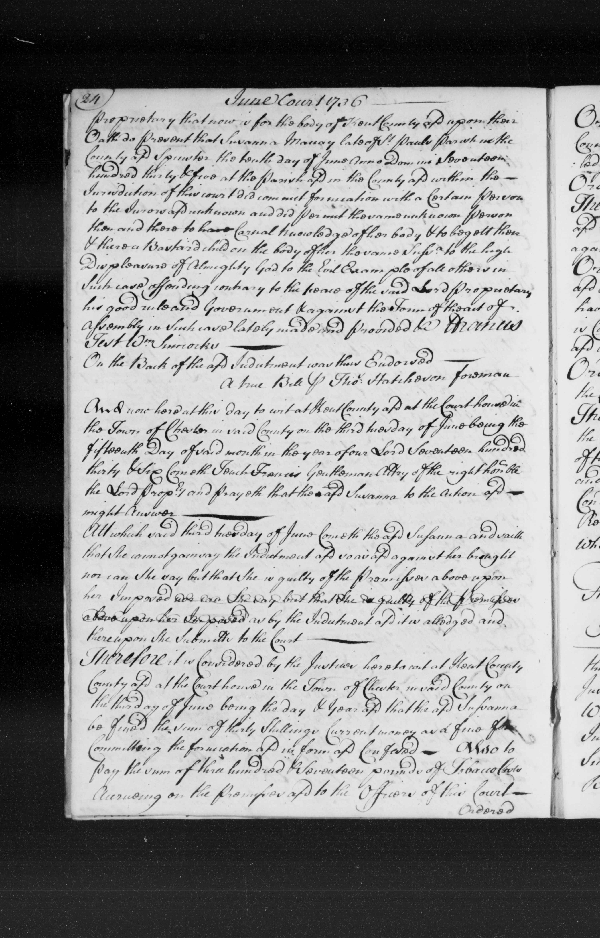 24
June Court 1736
Proprietary that now is for the body of Kent County afd upon their
Oath do present that Susanna Mauay late of St Pauls Parish in the
County afd Spinster the tenth day of June Anno Domini Seventeen
hundred thirty & five at the Parish afd in the County afd within the
Jurisdiction of this court did commit fornication with a Certain person
to the Jurors afd unknown and did permit the same unknown person
then and there to have Carnal knowledge of her body & to begett then
& there a Bastard child on the body of her the same Susa to the high
Displeasure of Almighty God to the Evil Example of all others in
Such case offending contrary to the peace of the said Lord Proprietary
his good rule and Government & against the form of the act of
Assembly in Such case lately made and provided &c JFrancis
Test Wm Simcocks
On the Back of the afd Indictment was thus Endorsed
A true Bill P Thos Hatcheson foreman
And now here at this day to wit at Kent County afd at the Court house in
the Town of Chester in said County on the third tuesday of June being the
fifteenth Day of said month in the year of our Lord Seventeen hundred
thirty & Six Cometh Teach Francis Gentleman Attry of the right honble
the Lord Propry and prayeth that the afd Susanna to the Action afd
might Answer
Att which said third tuesday of June Cometh the afd Susanna and saith
that She cannot gainsay the Indictment afd so as afd against her brought
nor can She say but that She is guilty of the premisses above upon
her imposed nor can She say but that She is guilty of the premisses
above upon her Imposed as by the Indictment afd it is alledged and
thereupon She Submitts to the Court
Therefore it is Considered by the Justices here to wit at Kent County
County afd at the Court house in the Town of Chester in said County on
the third day of June being the day & year afd that the afd Susanna
be fined the sum of thirty Shillings Current money as a fine for
Committing the fornication afd in form afd Confessed Also to
pay the sum of three hundred & Seventeen pounds of Tobacco Costs
Accrueing on the premisses afd to the Officers of this Court
Ordered